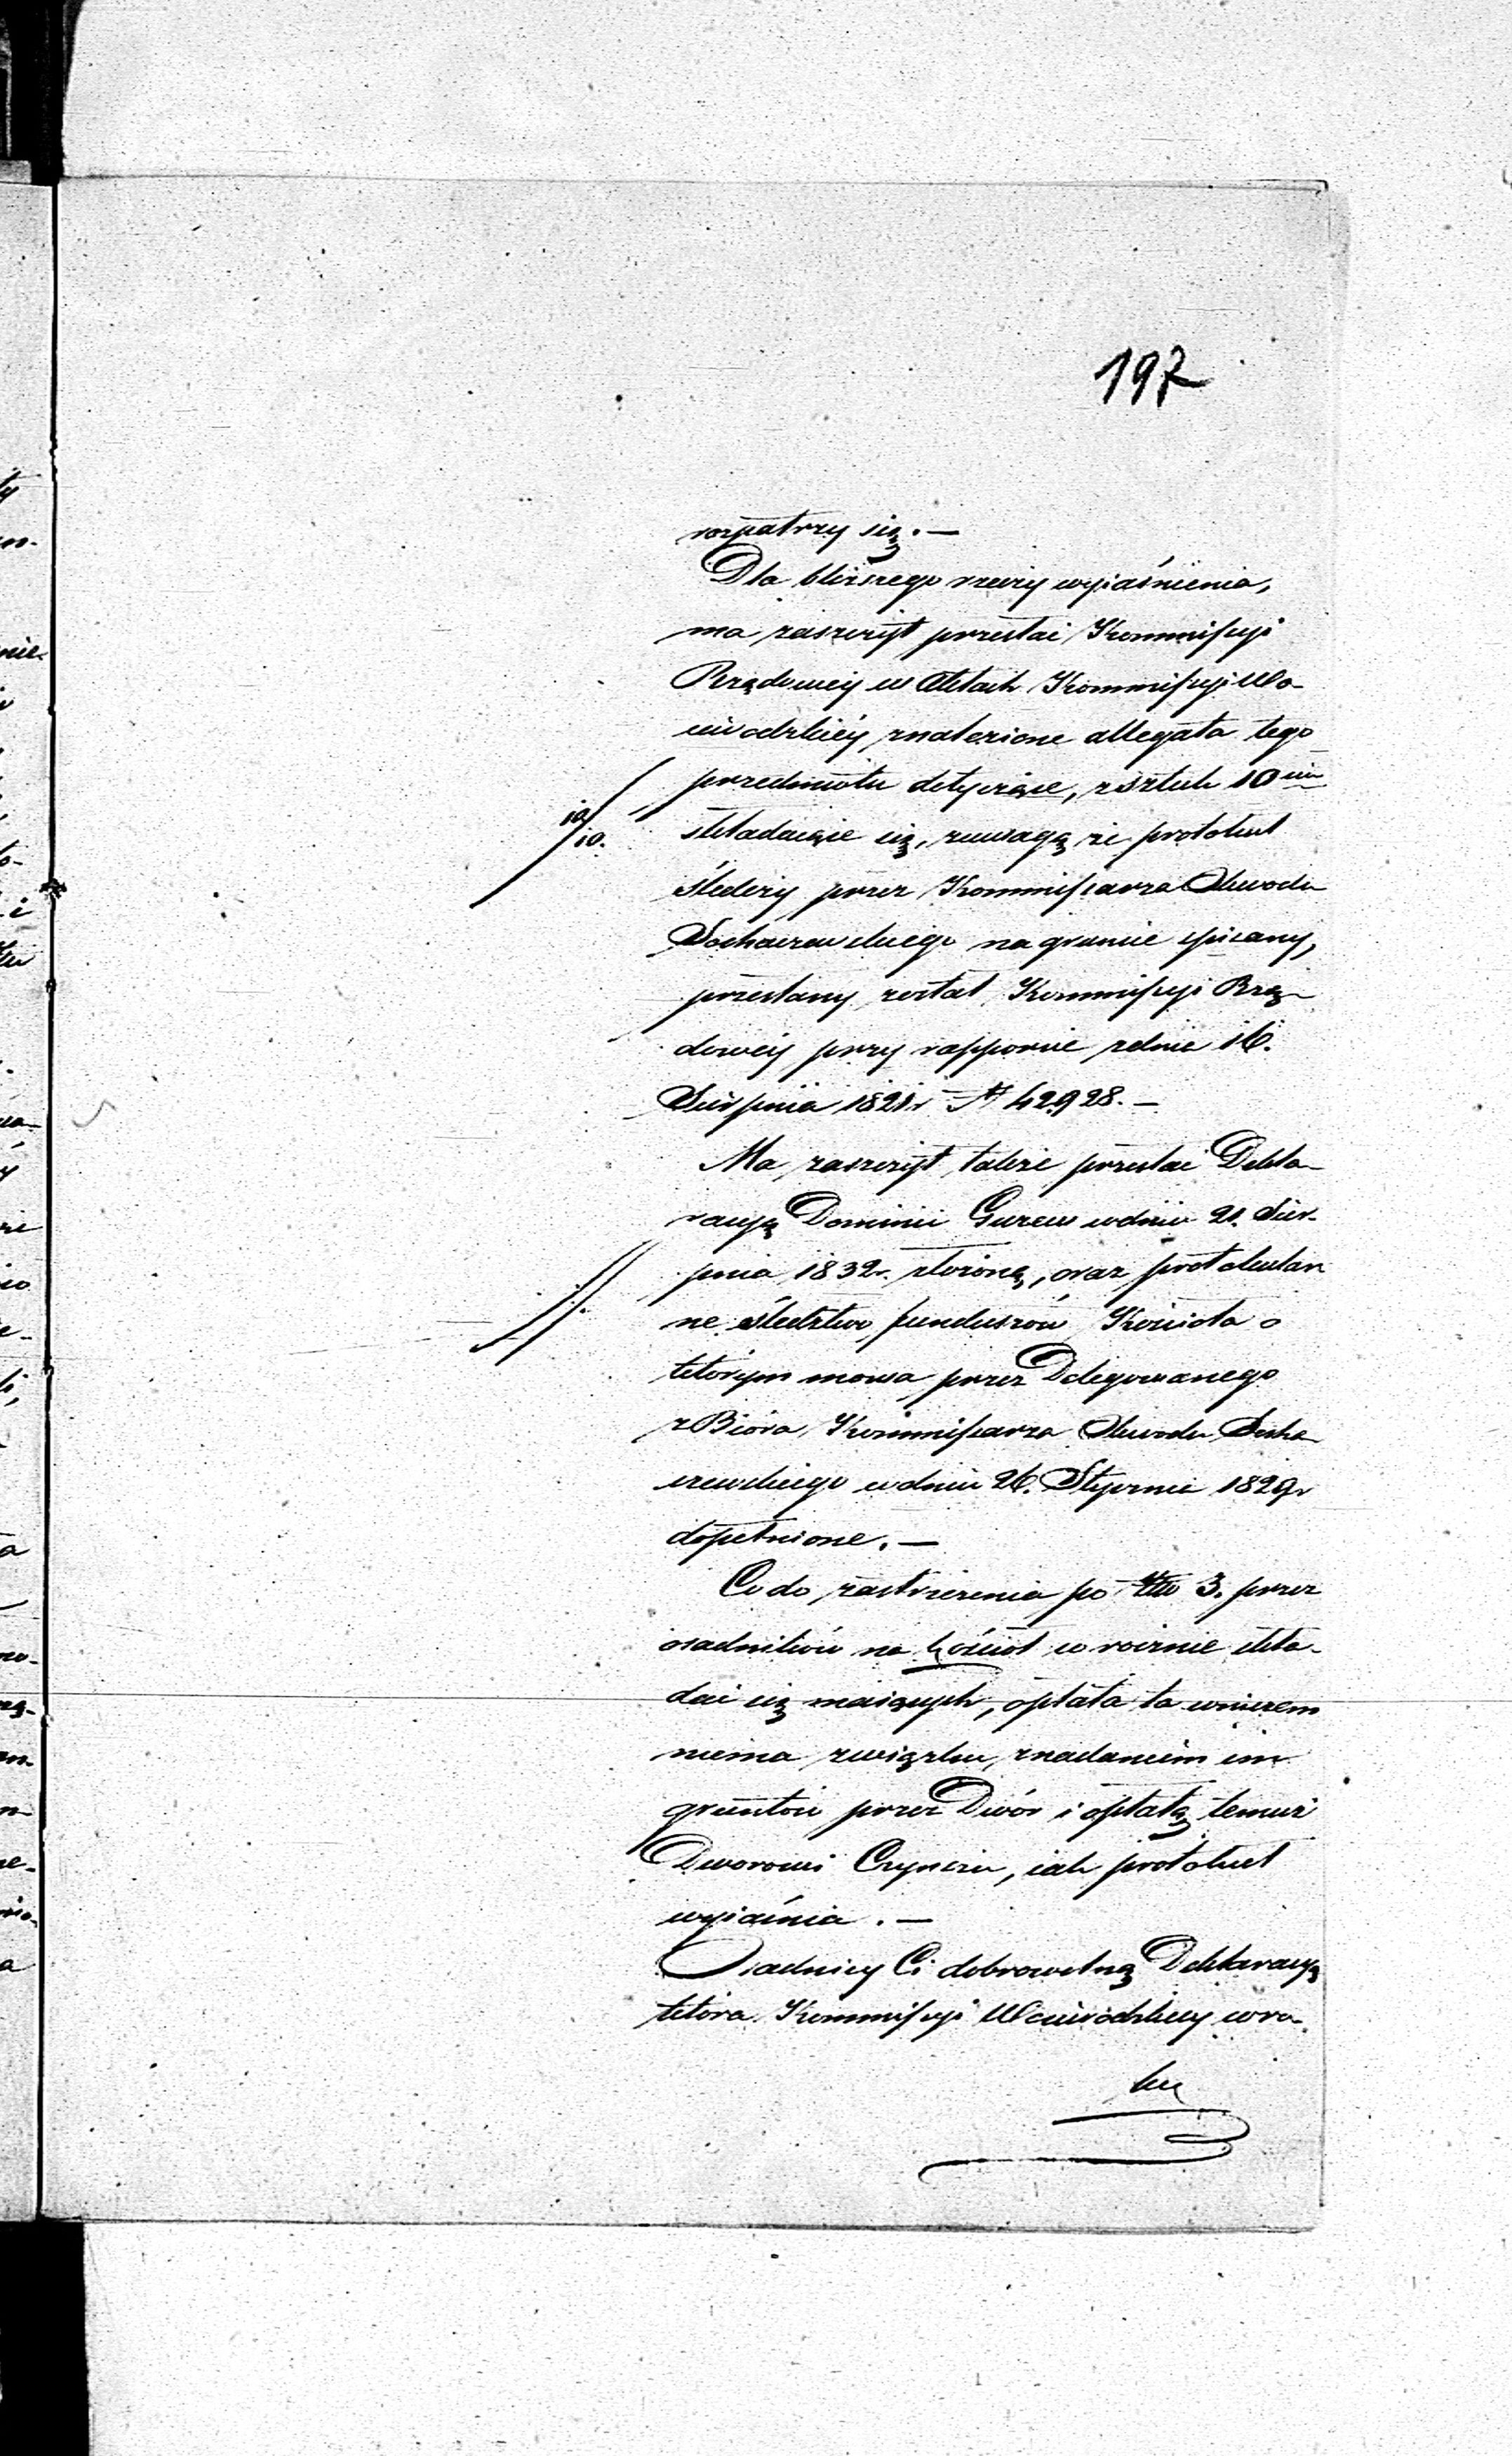 197
rozpatrzy się. —
Dla bliższego rzeczy wyiaśnienia,
ma zaszczyt przesłać Kommissyi
Rządowéy w Aktach Kommissyi Wo-
iewodzkiéy znalezione allegata tego
przedmiotu dotyczące, z sztuk 10ciu
składaiące się, z uwagą że protokuł
10/10.
śledczy przez Kommissarza Obwodu
Sochaczewskiego na gruncie spisany,
przesłany został Kommissyi Rzą-
dowéy przy rapporcie z dnia 16.
Sierpnia 1821r N 42928. —
Ma zaszczyt także przesłać Dekla-
racyą Dominii Guzew w dniu 21. Sier-
pnia 1832r. złożoną, oraz protokular
ne śledztwo funduszów Kościoła o
którym mowa przez Delegowanego
z Bióra Kommissarza Obwodu Socha
czewskiego w dniu 26. Stycznia 1829r
dopełnione. —
Co do zastrzeżenia po złł 3. przez
osadników na kościoł w rocznie skła-
dać się maiących, opłata ta w niczem
niema związku, z nadaniem im
gruntów przez Dwór i opłatą temuż
Dworowi Czynszu, iak protokuł
wyiaśnia. —
Osadnicy Ci dobrowolną Deklaracyą
która Kommissyi Woiewodzkiey w ra-